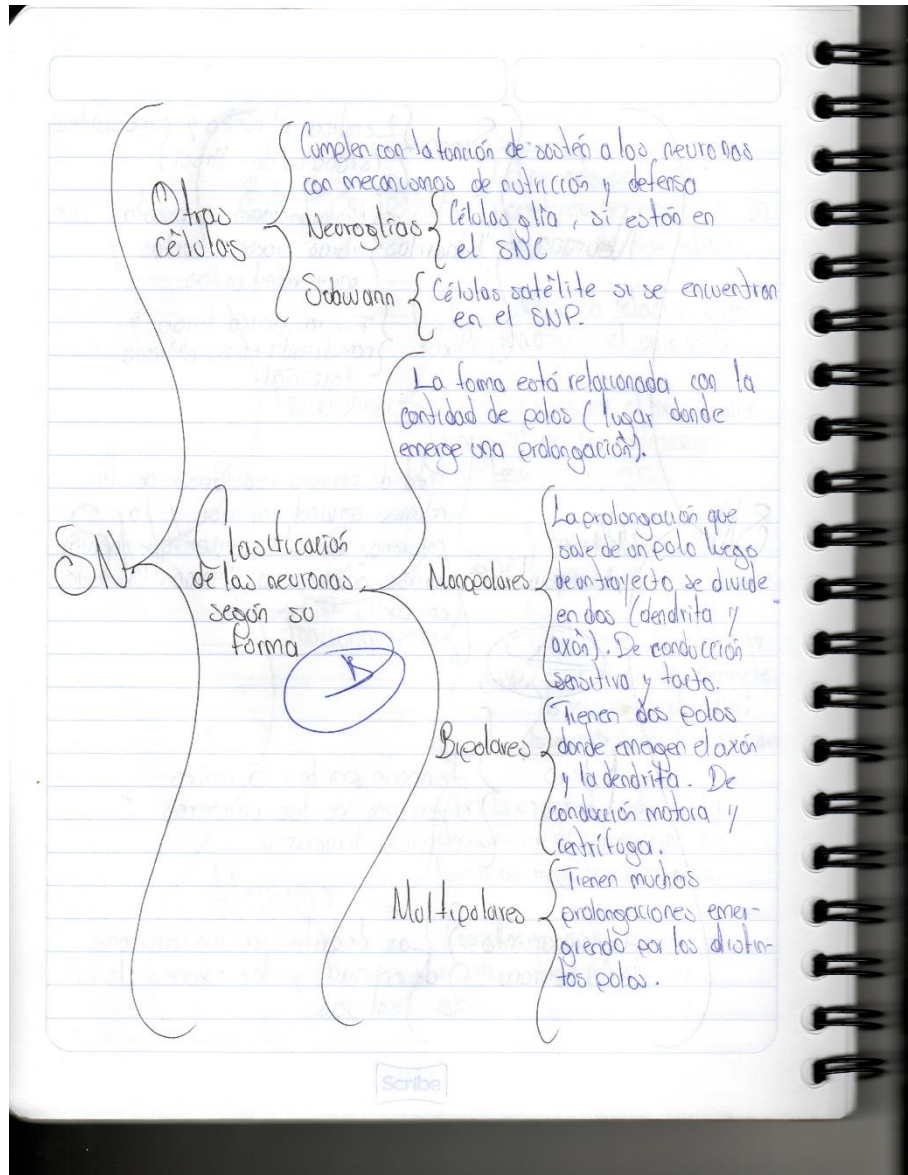 Otras
células
Cumplen con la función de sostén a las neuronas
con mecanismos de nutrición y defensa
Neuroglias
Células glía, si están en
el SNC
Schwann
Células satélite si se encuentran
en el SNP.
SN
Clasificación
de las neuronas
según su
forma
La forma está relacionada con la
cantidad de polos (lugar donde
emerge una prolongación).
Monopolares
La prolongación que
sale de un polo luego
de un trayecto se divide
en dos (dendrita y
axón). De conducción
sensitiva y tacto.
Bipolares
Tienen dos polos
donde emergen el axón
y la dendrita. De
conducción motora y
centrífuga.
Multipolares
Tienen muchas
prolongaciones emer-
giendo por los distin-
tos polos.
Scribe